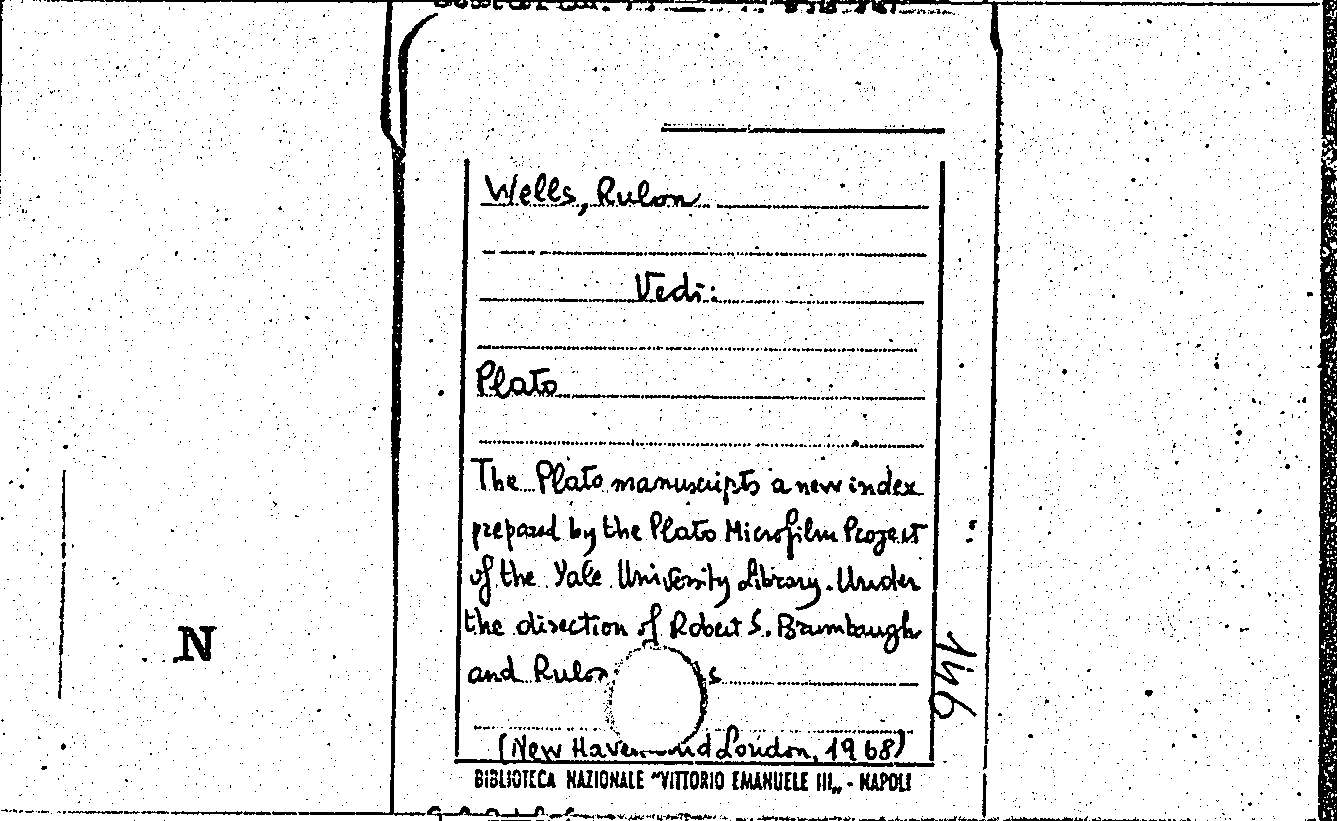 Wells, Rulon
Vedi:
Plato
The Plato manuscripts a new index
prepared by the Plato Microfilm Project
of the Yale University Library. Under
the direction of Robert S. Brumbaugh
and Rulon s
(New Haven and London, 1968)
BIBLIOTECA NAZIONALE "VITTORIO EMANUELE III„ - NAPOLI
146
N